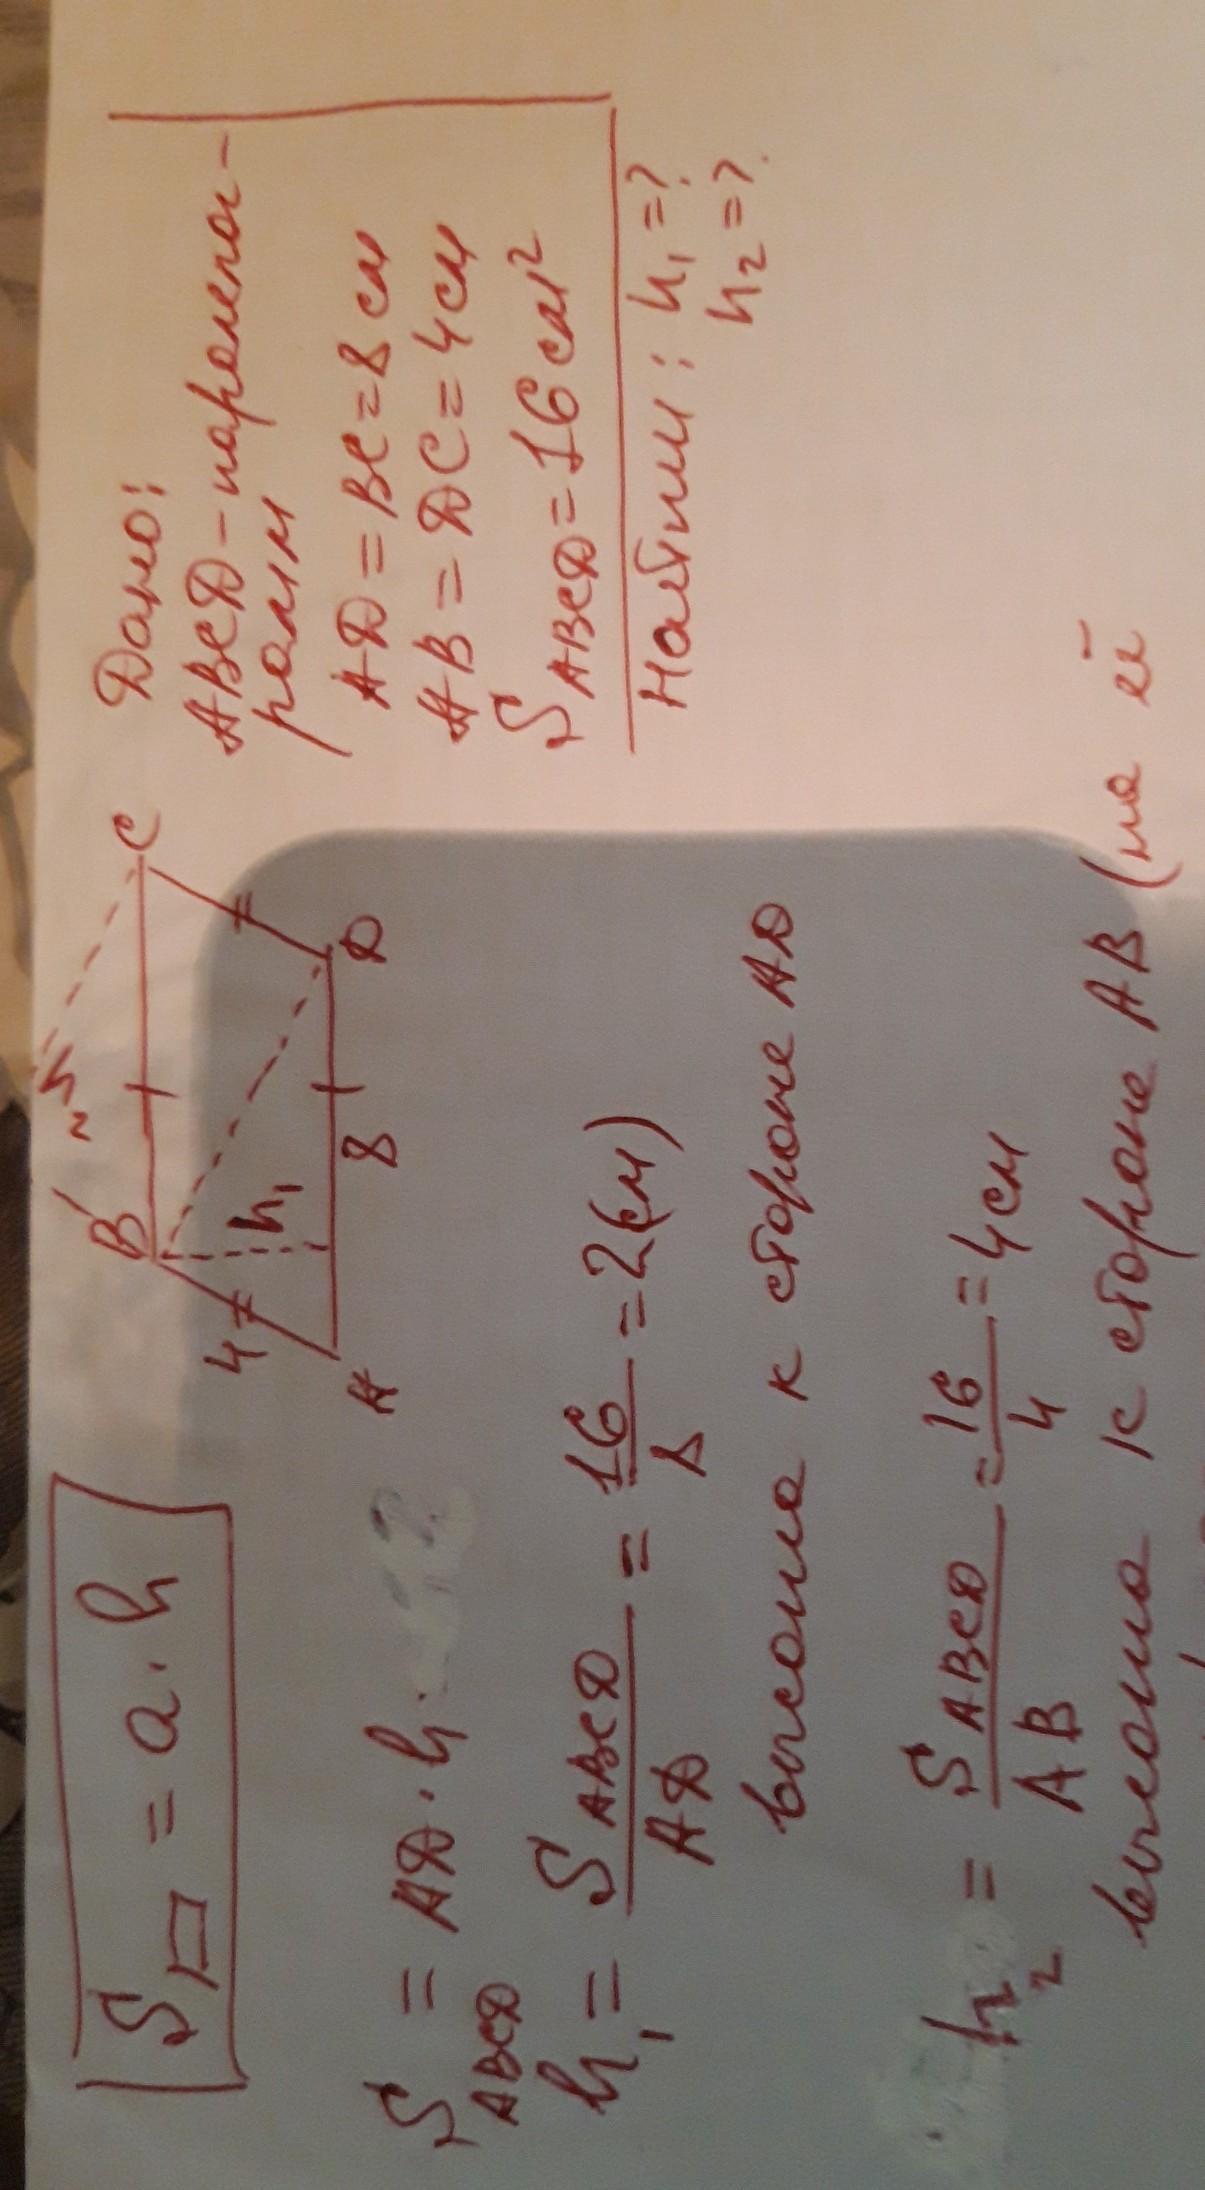 S▱ = a · h
B
C
A
D
4
8
h₁
h₂
Дано:
ABCD - параллелог-
рамм
AD = BC = 8 см
AB = DC = 4 см
S ABCD = 16 см²
Найти: h₁ = ?
h₂ = ?
S ABCD = AD · h
h₁ = S ABCD / AD = 16 / 8 = 2 (см)
высота к стороне AD
h₂ = S ABCD / AB = 16 / 4 = 4 см
высота к стороне AB (на её